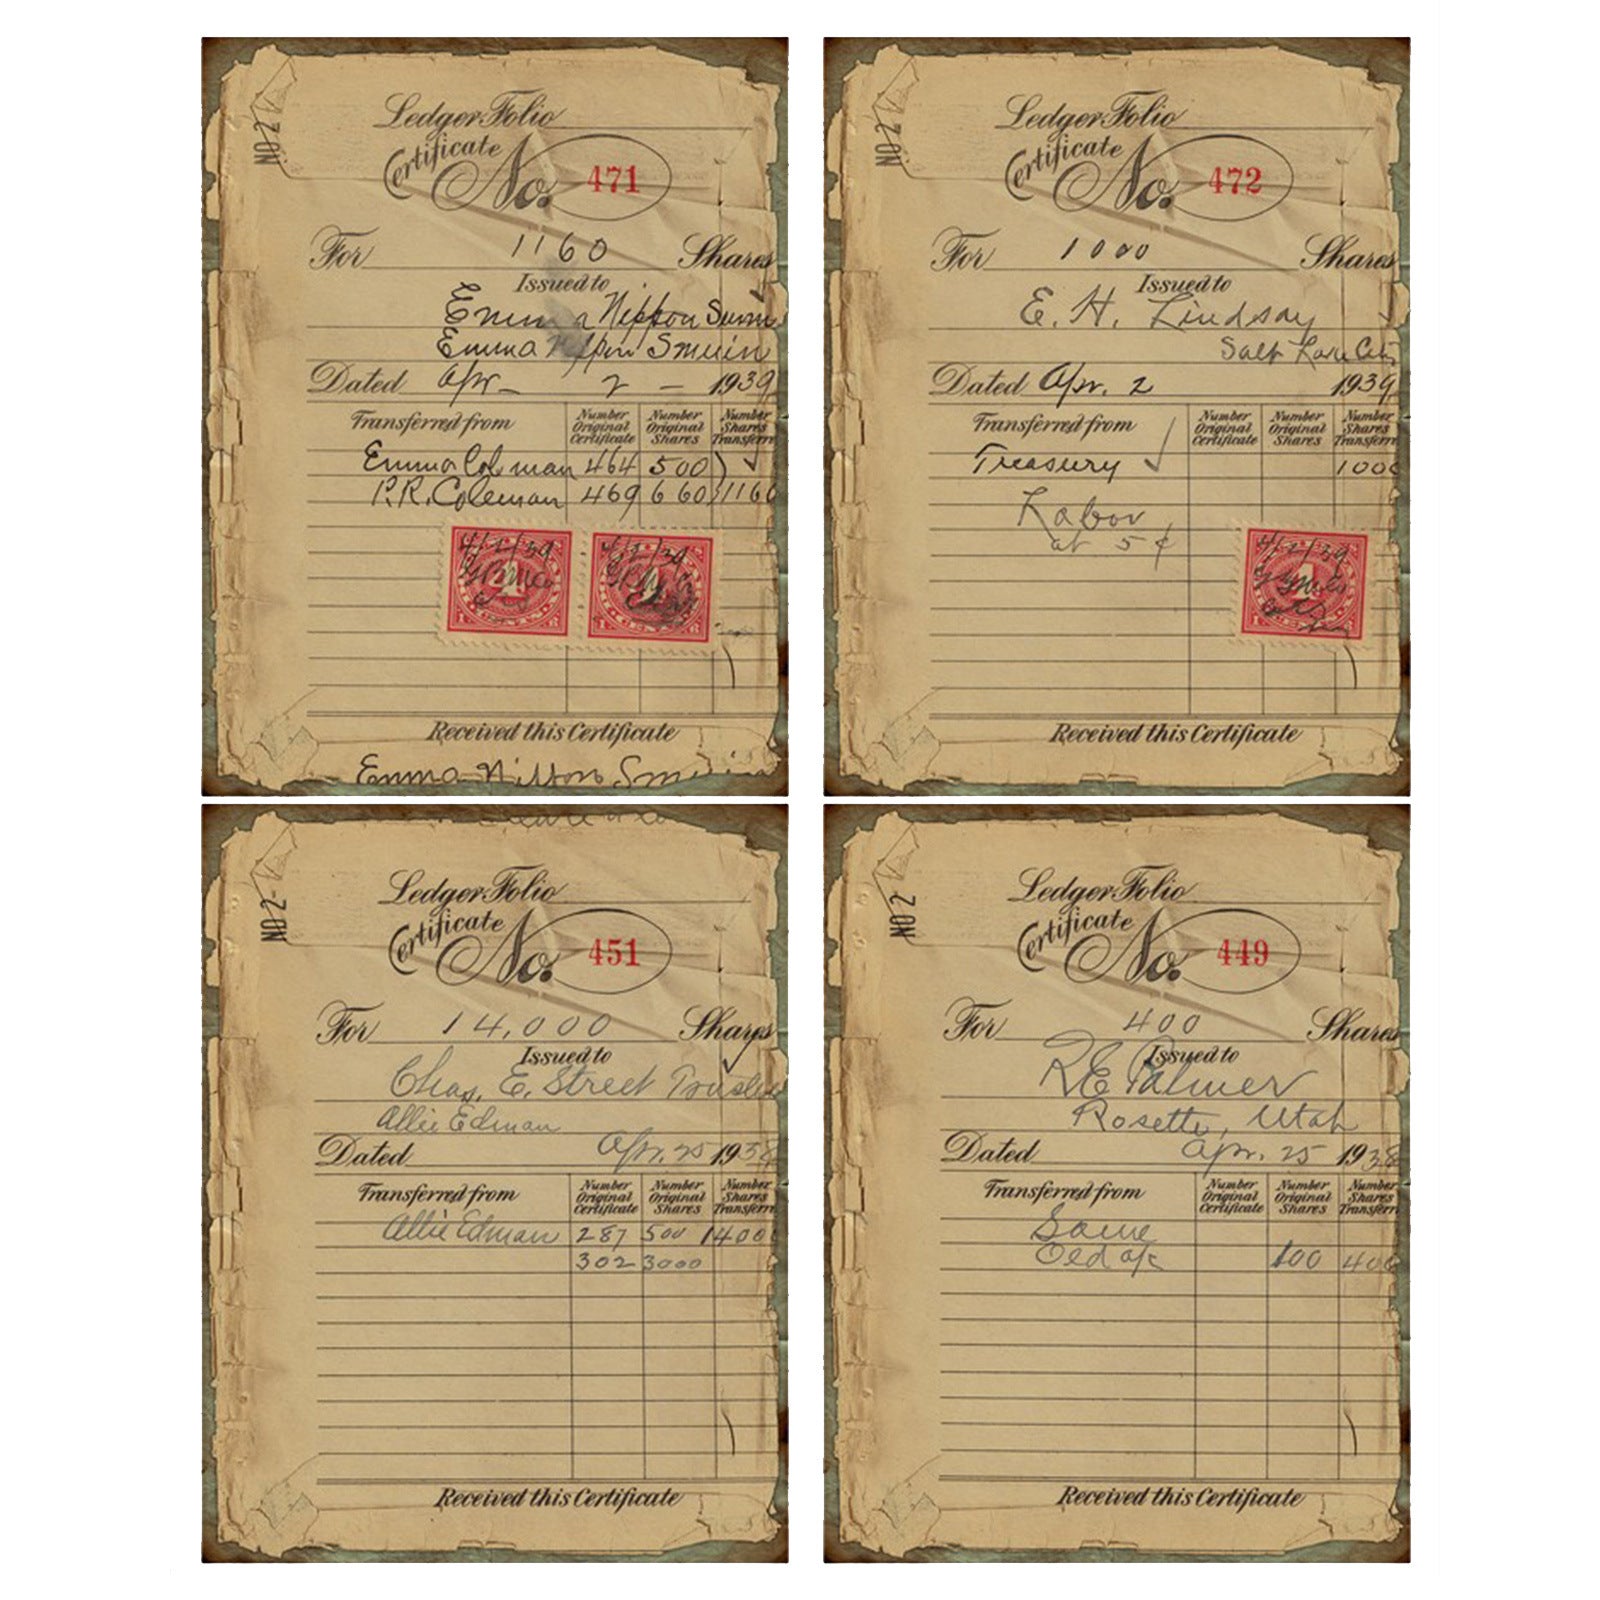 Ledger Folio
Certificate No. 471
NO 2
For 1160 Shares
Issued to
Emma Nippon
Emma Smuin
Dated Apr - 2 - 1939
Transferred from Number Original Certificate Number Original Shares Number Shares Transferre
Emma Coleman 464 500
P.R. Coleman 469 660 1160
4/2/39 4/2/39
4 4
CENTS CENTS
Received this Certificate
Emma
Ledger Folio
Certificate No. 472
NO 2
For 1000 Shares
Issued to
E. H. Lindsay
Salt Lake City
Dated Apr. 2 1939
Transferred from Number Original Certificate Number Original Shares Number Shares Transferre
Treasury 1000
Labor
at 5¢
4/2/39
Received this Certificate
Ledger Folio
Certificate No. 451
NO 2
For 14,000 Shares
Issued to
Chas. E. Street Trustee
Allie Edman
Dated Apr. 25 1938
Transferred from Number Original Certificate Number Original Shares Number Shares Transferre
Allie Edman 287 500 14000
302 3000
Received this Certificate
Ledger Folio
Certificate No. 449
NO 2
For 400 Shares
Issued to
R E Palmer
Rosette, Utah
Dated Apr. 25 1938
Transferred from Number Original Certificate Number Original Shares Number Shares Transferre
Same
Old a/c 100 400
Received this Certificate